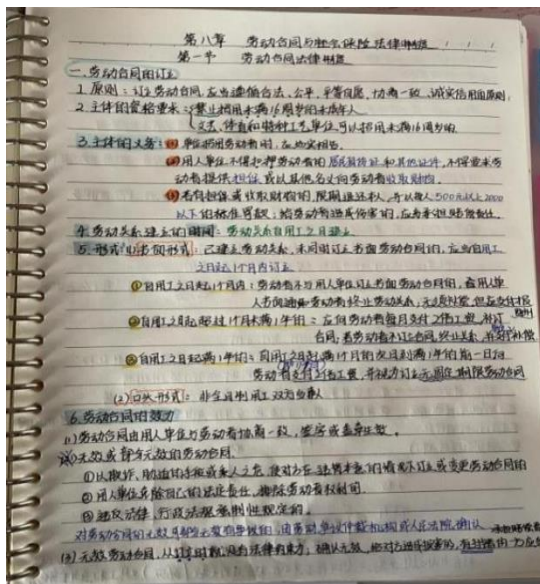 第八章 劳动合同与社会保险法律制度
第一节 劳动合同法律制度
一、劳动合同的订立
1. 原则:订立劳动合同,应当遵循合法、公平、平等自愿、协商一致、诚实信用的原则.
2. 主体的资格要求:禁止招用未满16周岁的未成年人
文艺、体育和特种工艺单位可以招用未满16周岁的.
3. 主体的义务:(1)单位招用劳动者时,应如实相告.
(2)用人单位不得扣押劳动者的居民身份证和其他证件,不得要求劳
动者提供担保或以其他名义向劳动者收取财物.
(3)若有担保或收取财物的,限期退还本人,并以每人500元以上2000
以下的标准罚款;给劳动者造成伤害的,应当承担赔偿责任.
4. 劳动关系建立的时间:劳动关系自用工之日建立.
5. 形式:(1)书面形式:已建立劳动关系,未同时订立书面劳动合同的,应当自用工
之日起1个月内订立
①自用工之日起1个月内:劳动者不与用人单位订立书面劳动合同的,用人单
人书面通知劳动者终止劳动关系,无须补偿,但应支付报
②自用工之日起超过1个月未满1年的:应向劳动者每月支付2倍工资,补订
合同;若劳动者不订立合同,终止关系,并支付补偿
③自用工之日起满1年的:自用工之日起满1个月的次日到满1年的前一日向
劳动者支付2倍工资,并视为订立无固定期限劳动合同
(2)口头形式:非全日制用工双方当事人
6. 劳动合同的效力
(1)劳动合同由用人单位与劳动者协商一致,签字或盖章生效.
(2)无效或部分无效的劳动合同.
①以欺诈、胁迫的手段或乘人之危,使对方在违背本意的情况下订立或变更劳动合同的
②用人单位免除自己的法定责任,排除劳动者权利的.
③违反法律、行政法规强制性规定的.
对劳动合同的无效或部分无效有争议的,由劳动争议仲裁机构或人民法院确认
(3)无效劳动合同,从订立时就没有法律约束力,确认无效,给对方造成损害的,有过错的一方应